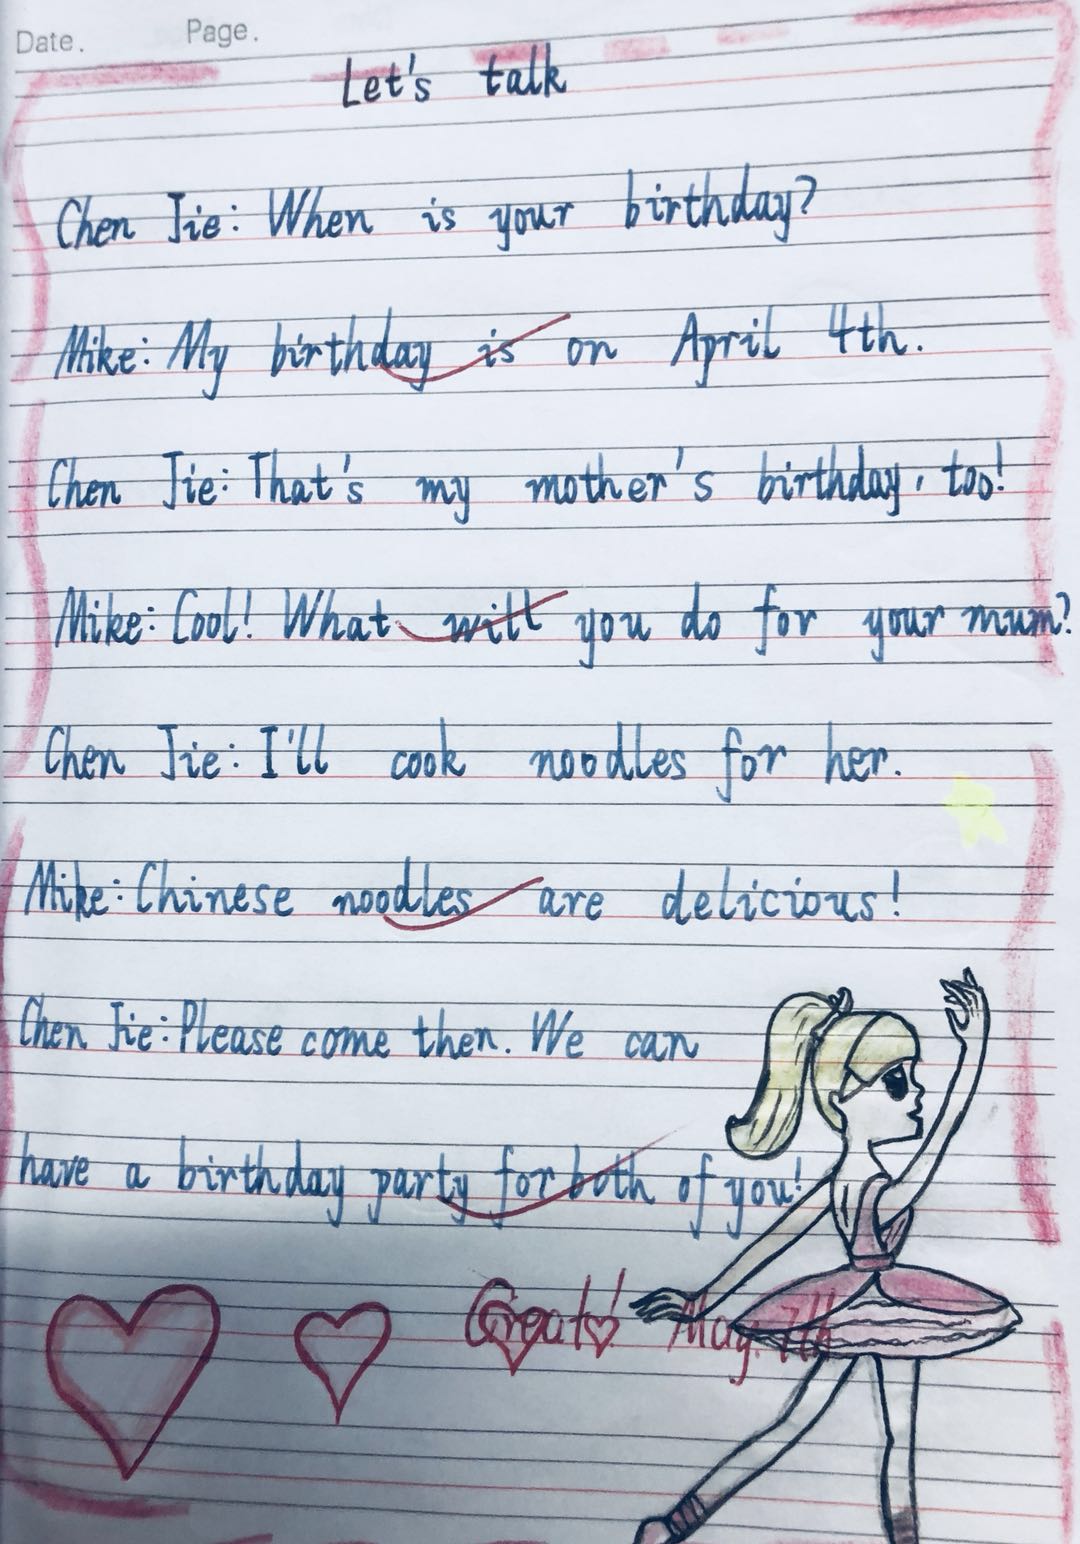 Date. Page.
Let's talk
Chen Jie: When is your birthday?
Mike: My birthday is on April 4th.
Chen Jie: That's my mother's birthday, too!
Mike: Cool! What will you do for your mum?
Chen Jie: I'll cook noodles for her.
Mike: Chinese noodles are delicious!
Chen Jie: Please come then. We can
have a birthday party for both of you!
Great! May. 7th